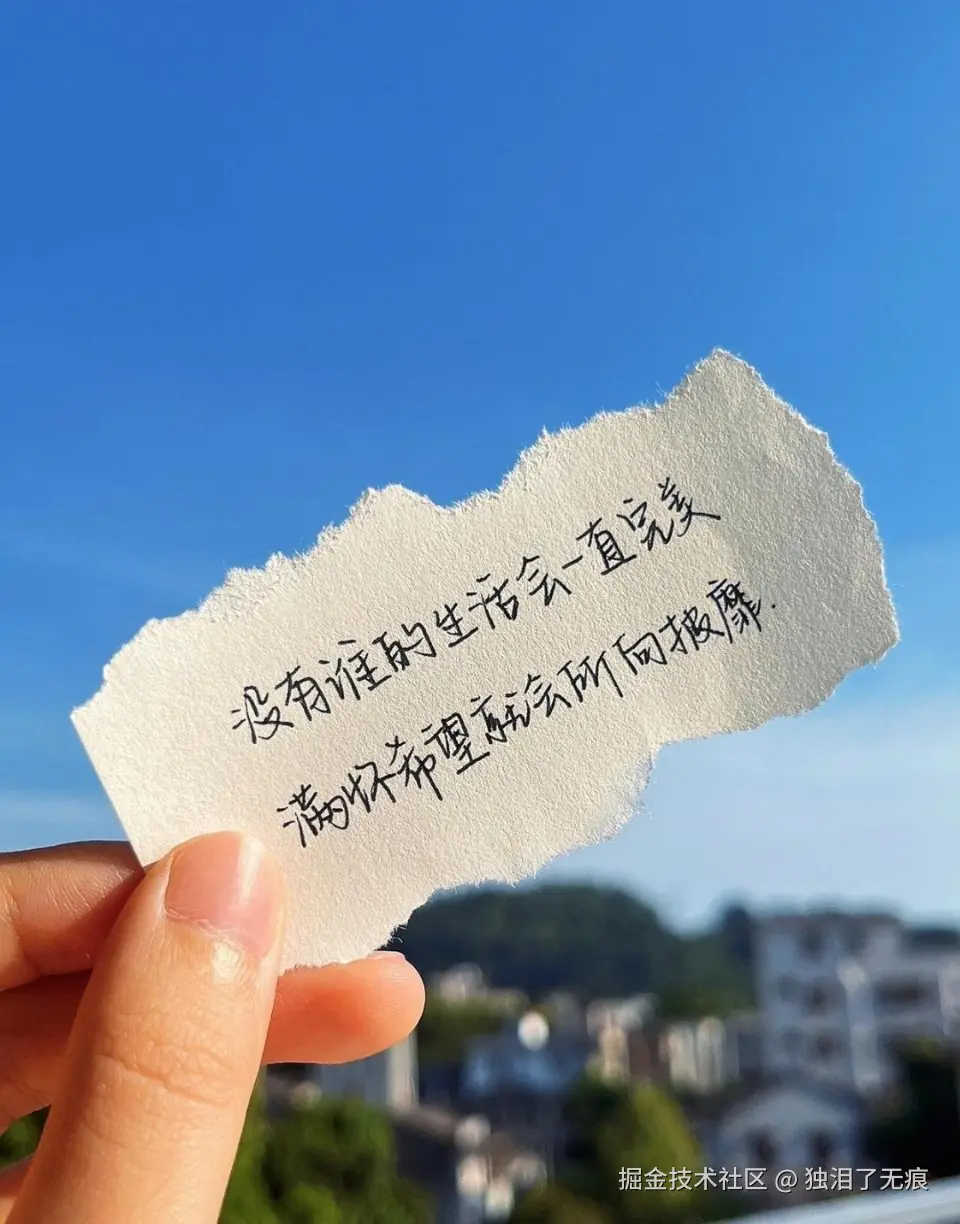 没有谁的生活会一直完美
满怀希望就会所向披靡.
掘金技术社区 @ 独泪了无痕